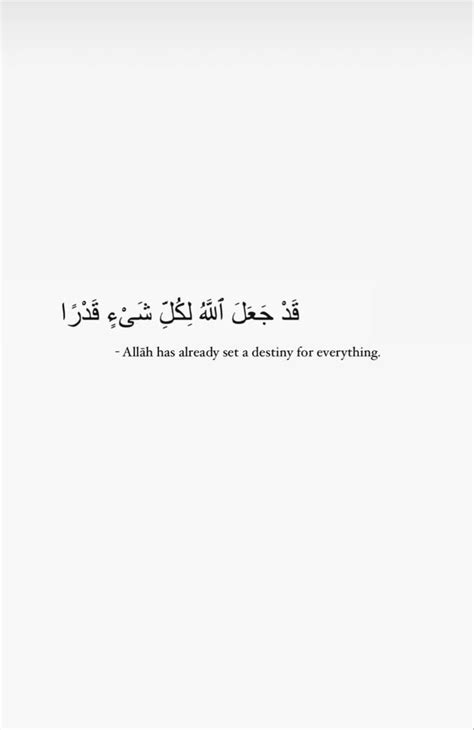 قَدْ جَعَلَ ٱللَّهُ لِكُلِّ شَىْءٍ قَدْرًا
- Allāh has already set a destiny for everything.